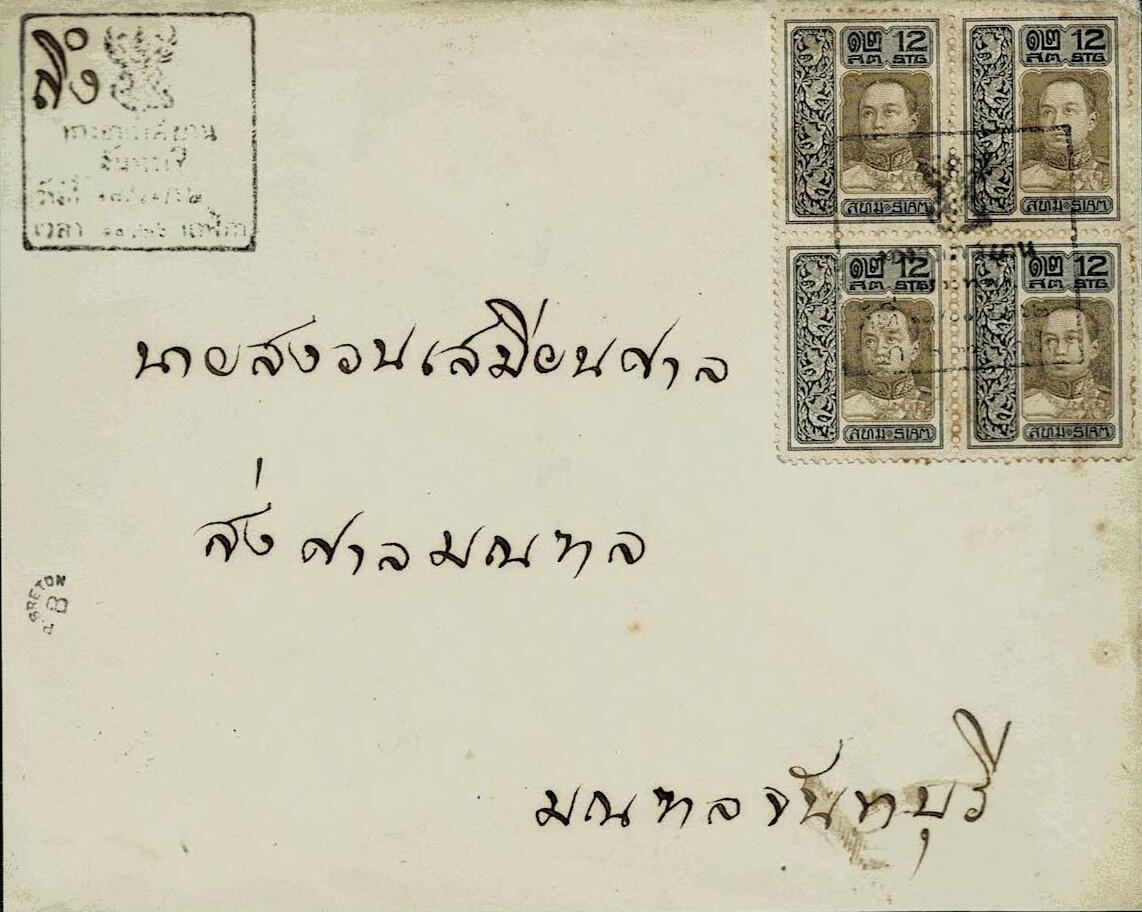 ส่ง
วันที่
เวลา
๑๒ 12
สต. STG
สยาม SIAM
๑๒ 12
สต. STG
สยาม SIAM
๑๒ 12
สต. STG
สยาม SIAM
๑๒ 12
สต. STG
สยาม SIAM
นายสงวนเสมียนศาล
ส่งศาลมณฑล
P. BRETON
มณฑลจันทบุรี